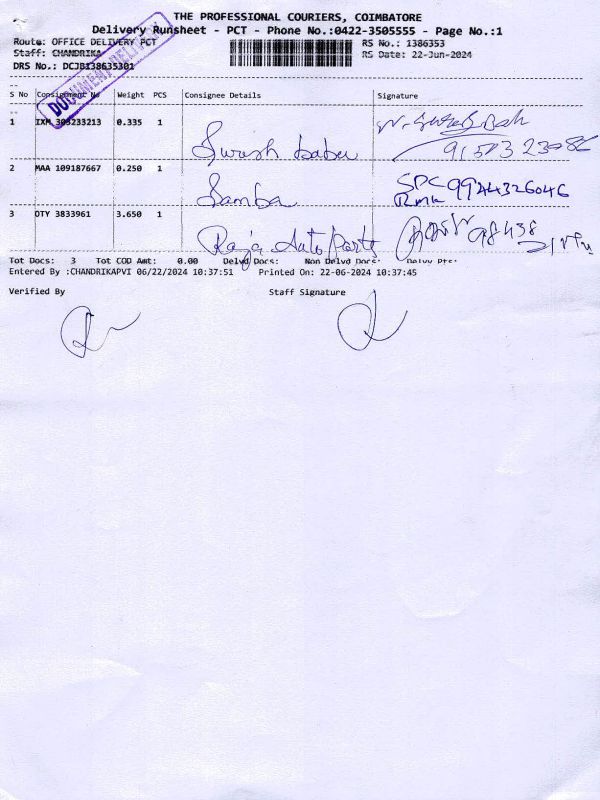 THE PROFESSIONAL COURIERS, COIMBATORE
Delivery Runsheet - PCT - Phone No.:0422-3505555 - Page No.:1
Route: OFFICE DELIVERY PCT
RS No.: 1386353
Staff: CHANDRIKA
RS Date: 22-Jun-2024
DRS No.: DCJB138635301
DOCUMENT DELIVERY
S No Consignment No Weight PCS Consignee Details Signature
1 IXM 303233213 0.335 1
Suresh babu
2 MAA 109187667 0.250 1
Samba
SPC 9944326046
3 OTY 3833961 3.650 1
Raja Auto Parts
Tot Docs: 3 Tot COD Amt: 0.00 Delvd Docs: Non Delvd Docs:
Entered By :CHANDRIKAPVI 06/22/2024 10:37:51 Printed On: 22-06-2024 10:37:45
Verified By Staff Signature